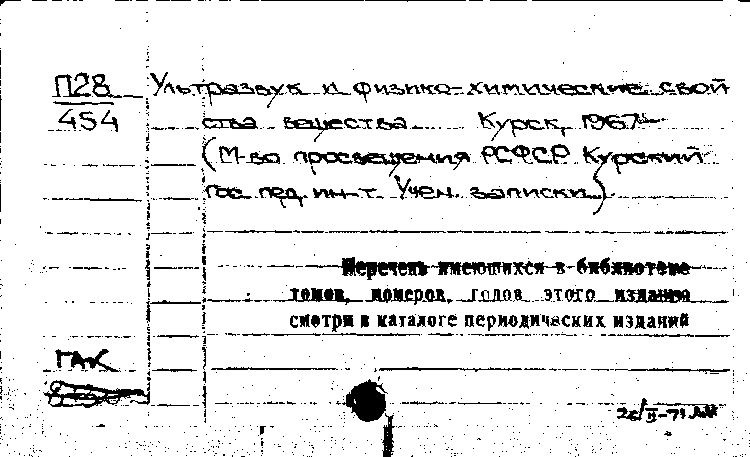 П28 Ультразвук и физико-химические свой
454 ства вещества Курск, 1967
(М-во просвещения РСФСР Курский
гос. пед. ин-т. Учен. записки)
Перечень имеющихся в библиотеке
томов, номеров, годов этого издания
смотри в каталоге периодических изданий
ГАК